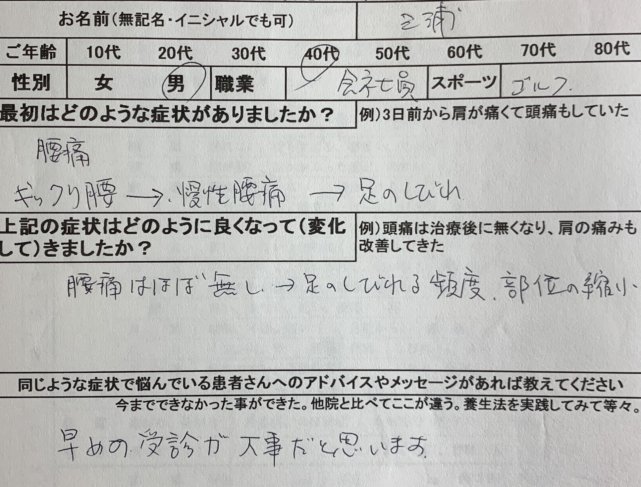 お名前(無記名・イニシャルでも可) 三浦
ご年齢 10代 20代 30代 40代 50代 60代 70代 80代
性別 女 男 職業 会社員 スポーツ ゴルフ
最初はどのような症状がありましたか? 例)3日前から肩が痛くて頭痛もしていた
腰痛
ギックリ腰→慢性腰痛→足のしびれ
上記の症状はどのように良くなって(変化 例)頭痛は治療後に無くなり、肩の痛みも
して)きましたか? 改善してきた
腰痛はほぼ無し→足のしびれる頻度、部位の縮小
同じような症状で悩んでいる患者さんへのアドバイスやメッセージがあれば教えてください
今までできなかった事ができた。他院と比べてここが違う。養生法を実践してみて等々。
早めの受診が大事だと思います